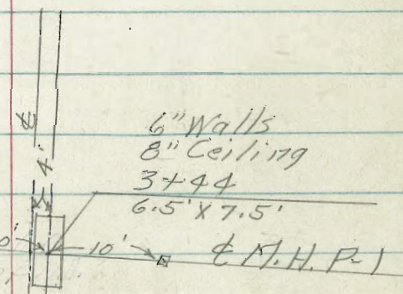 ℄
4'
6" Walls
8" Ceiling
3+44
6.5' X 7.5'
0' 10' ℄ M.H. P-1